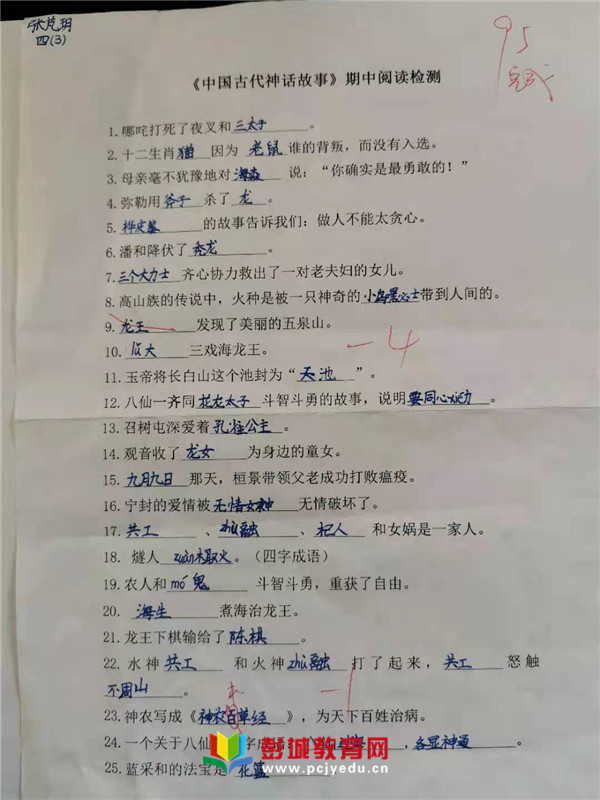 张芃玥
四(3)
95
《中国古代神话故事》期中阅读检测
1.哪咤打死了夜叉和三太子。
2.十二生肖猫因为老鼠谁的背叛,而没有入选。
3.母亲毫不犹豫地对海森说:“你确实是最勇敢的!”
4.弥勒用斧子杀了龙。
5.的故事告诉我们:做人不能太贪心。
6.潘和降伏了秃龙。
7.三个大力士齐心协力救出了一对老夫妇的女儿。
8.高山族的传说中,火种是被一只神奇的小乌黑必士带到人间的。
9.龙王发现了美丽的五泉山。
10.三戏海龙王。
-4
11.玉帝将长白山这个池封为“天池”。
12.八仙一齐同花龙太子斗智斗勇的故事,说明要同心协力。
13.召树屯深爱着孔雀公主。
14.观音收了龙女为身边的童女。
15.九月九日那天,桓景带领父老成功打败瘟疫。
16.宁封的爱情被无情女神无情破坏了。
17.共工、zhù融、杞人和女娲是一家人。
18.燧人zuān木取火。(四字成语)
19.农人和mó鬼斗智斗勇,重获了自由。
20.海生煮海治龙王。
21.龙王下棋输给了陈棋。
22.水神共工和火神zhù融打了起来,共工怒触
不周山。
-1
本
23.神农写成《神农百草经》,为天下百姓治病。
24.一个关于八仙字成语:,各显神通。
25.蓝采和的法宝是花篮
彭城教育网
www.pcjyedu.cn